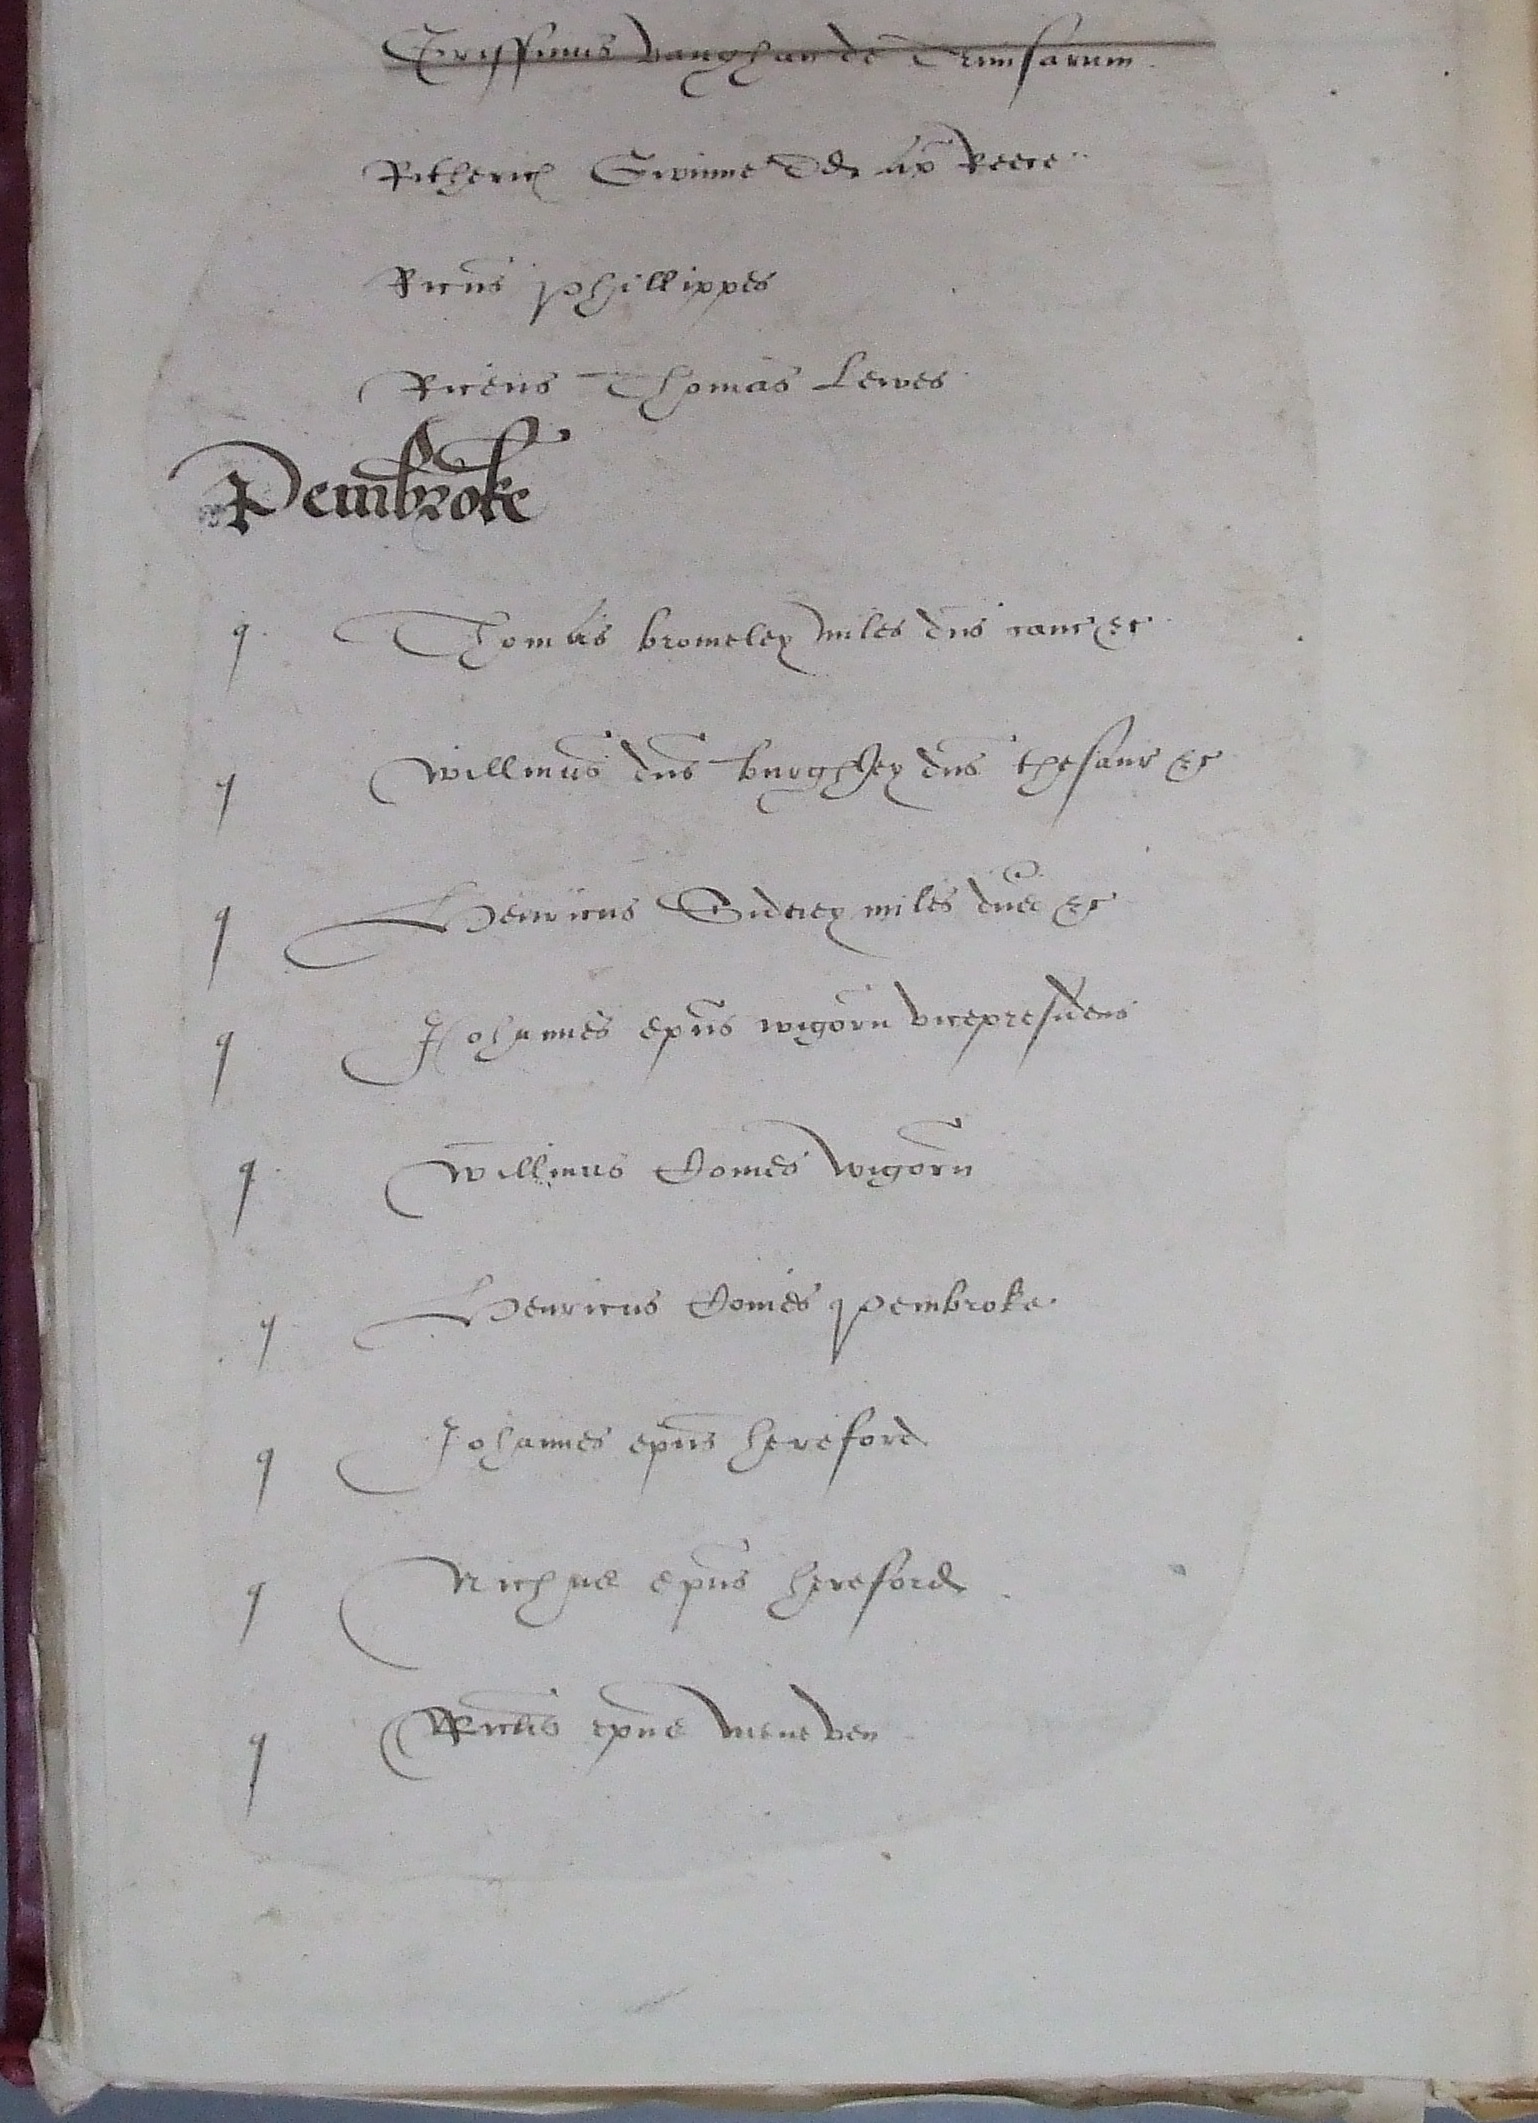 Griffinus vaughan de Trimsarum
Ritherich Gwinne Dd ap Reece
Ricus Phillippes
Riceus Thomas Lewes
Pembroke
q Thomas bromeley miles dns canc &c
q Willmus dns burghley dns thesaur &c
q Henricus Sidney miles &c
q Johannes epus wigorn vicepresidens
q Willmus Comes wigorn
q Henricus Comes Pembroke
q Johannes epus hereford
q epus hereford
q Ricus epus meneven